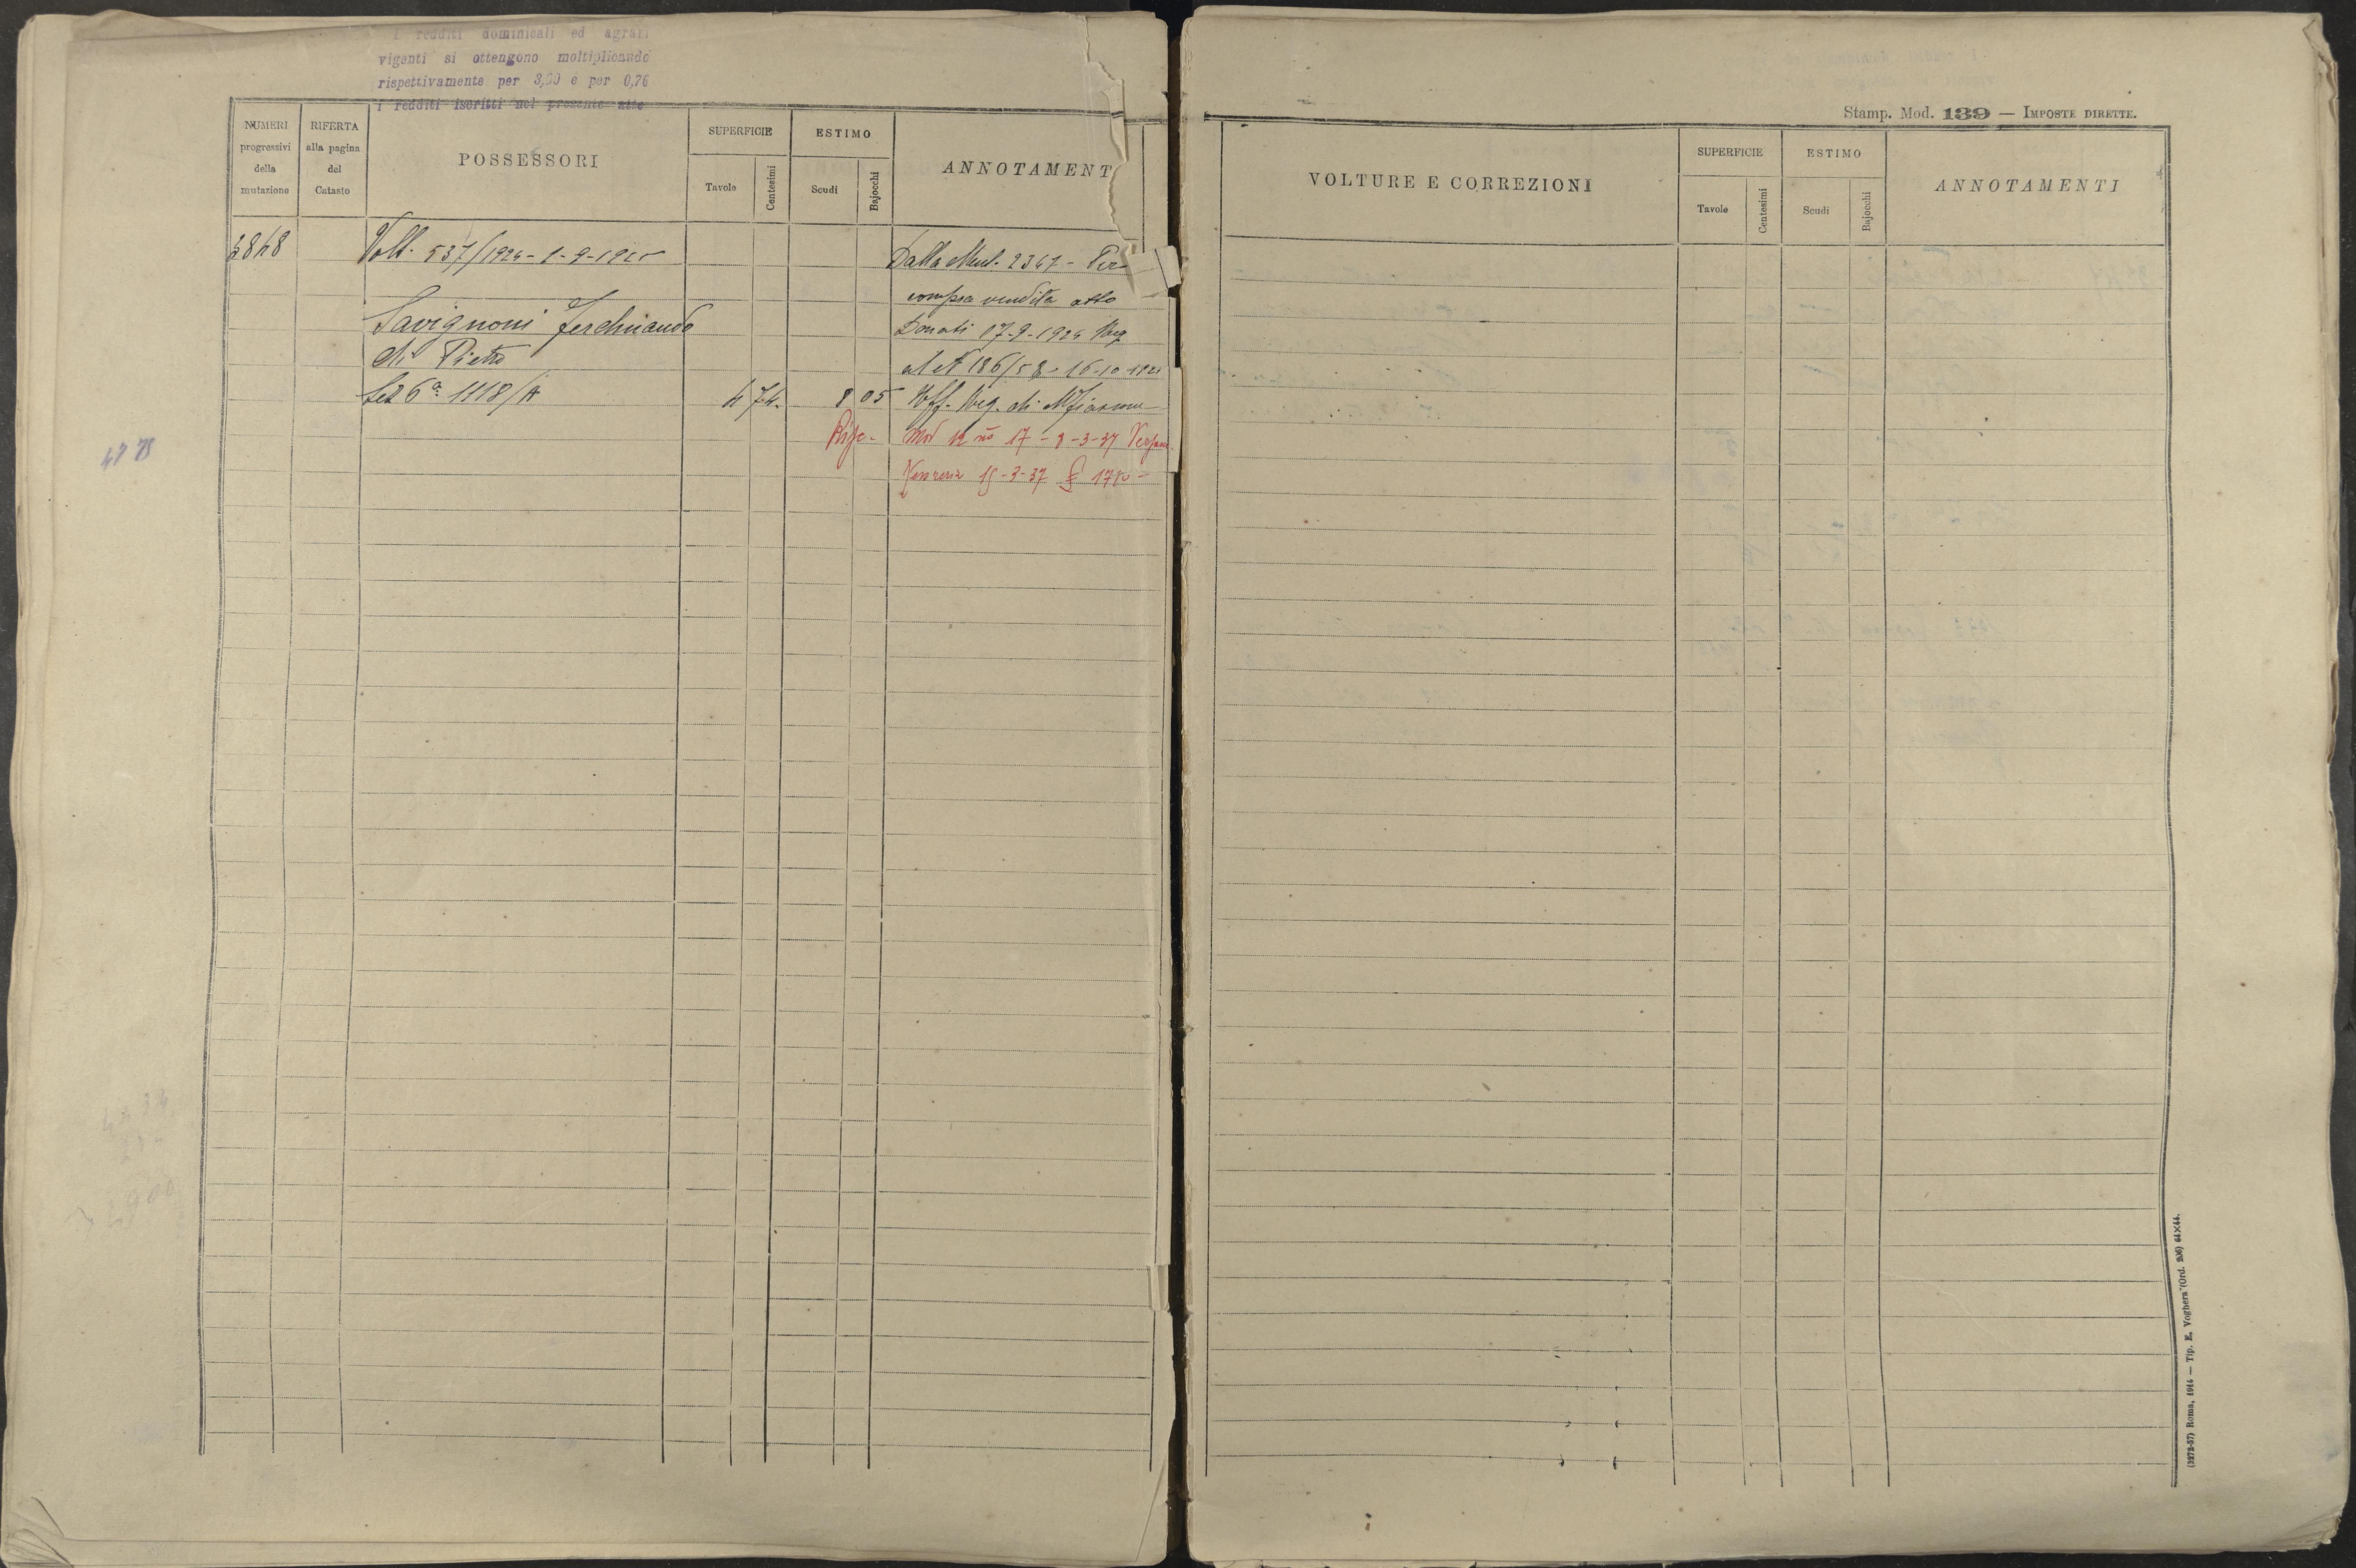 I redditi dominicali ed agrari
vigenti si ottengono moltiplicando
rispettivamente per 3,00 e per 0,76
i redditi iscritti nel presente atto
NUMERI
progressivi
della
mutazione
RIFERTA
alla pagina
del
Catasto
POSSESSORI
SUPERFICIE
Tavole
Centesimi
ESTIMO
Scudi
Bajocchi
ANNOTAMENT
Volt. 537/1924 - 1-9-1925
Savignoni Ferdinando
di Pietro
Sez 6a 1118/A
4 74
8 05
Dalla Mut. 2347 - Per
compra vendita atto
Donati 17-9-1924 Reg
al N 186/58 - 16-10-1924
Uff. Reg. di
Mod 12 no 17 - 8-3-37
15-3-37 £
Stamp. Mod. 139 — IMPOSTE DIRETTE.
VOLTURE E CORREZIONI
SUPERFICIE
Tavole
Centesimi
ESTIMO
Scudi
Bajocchi
ANNOTAMENTI
(3272-57) Roma, 1914 — Tip. E. Voghera (Ord. 206) 64×44.